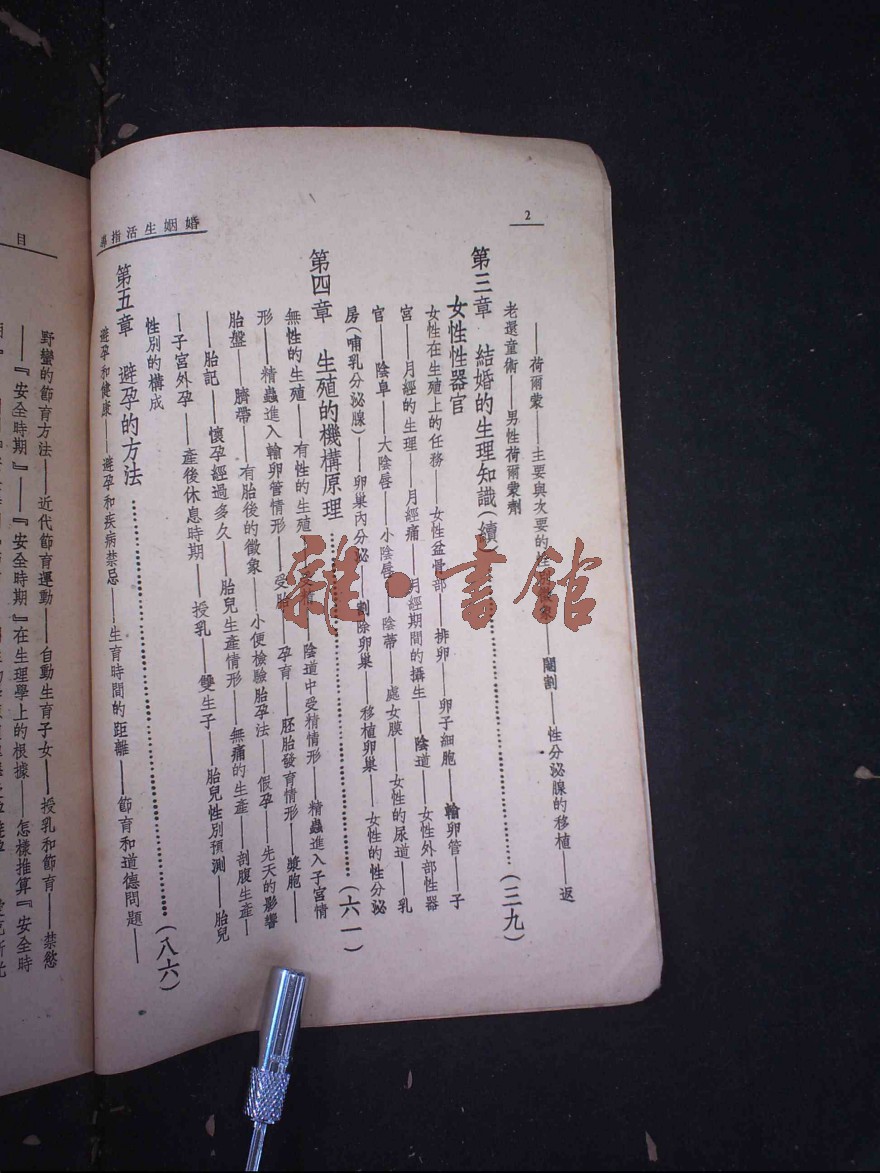 2
婚姻生活指導
——荷爾蒙——主要與次要的性
——閹割——性分泌腺的移植——返
老還童術——男性荷爾蒙劑
第三章 結婚的生理知識(續)……(三九)
女性性器官
女性在生殖上的任務——女性盆骨部——排卵——卵子細胞——輸卵管——子
宮——月經的生理——月經痛——月經期間的攝生——陰道——女性外部性器
官——陰阜——大陰唇——小陰唇——陰蒂——處女膜——女性的尿道——乳
房(哺乳分泌腺)——卵巢內分泌——割除卵巢——移植卵巢——女性的性分泌
第四章 生殖的機構原理……(六一)
無性的生殖——有性的生殖——陰道中受精情形——精蟲進入子宮情
形——精蟲進入輸卵管情形——受胎——孕育——胚胎發育情形——漿胞——
胎盤——臍帶——有胎後的徵象——小便檢驗胎孕法——假孕——先天的影響
——胎記——懷孕經過多久——胎兒生產情形——無痛的生產——剖腹生產—
—子宮外孕——產後休息時期——授乳——雙生子——胎兒性別預測——胎兒
性別的構成
第五章 避孕的方法……(八六)
避孕和健康——避孕和疾病禁忌——生育時間的距離——節育和道德問題——
目
野蠻的節育方法——近代節育運動——自動生育子女——授乳和節育——禁慾
——『安全時期』——『安全時期』在生理學上的根據——怎樣推算『安全時
雜·書館